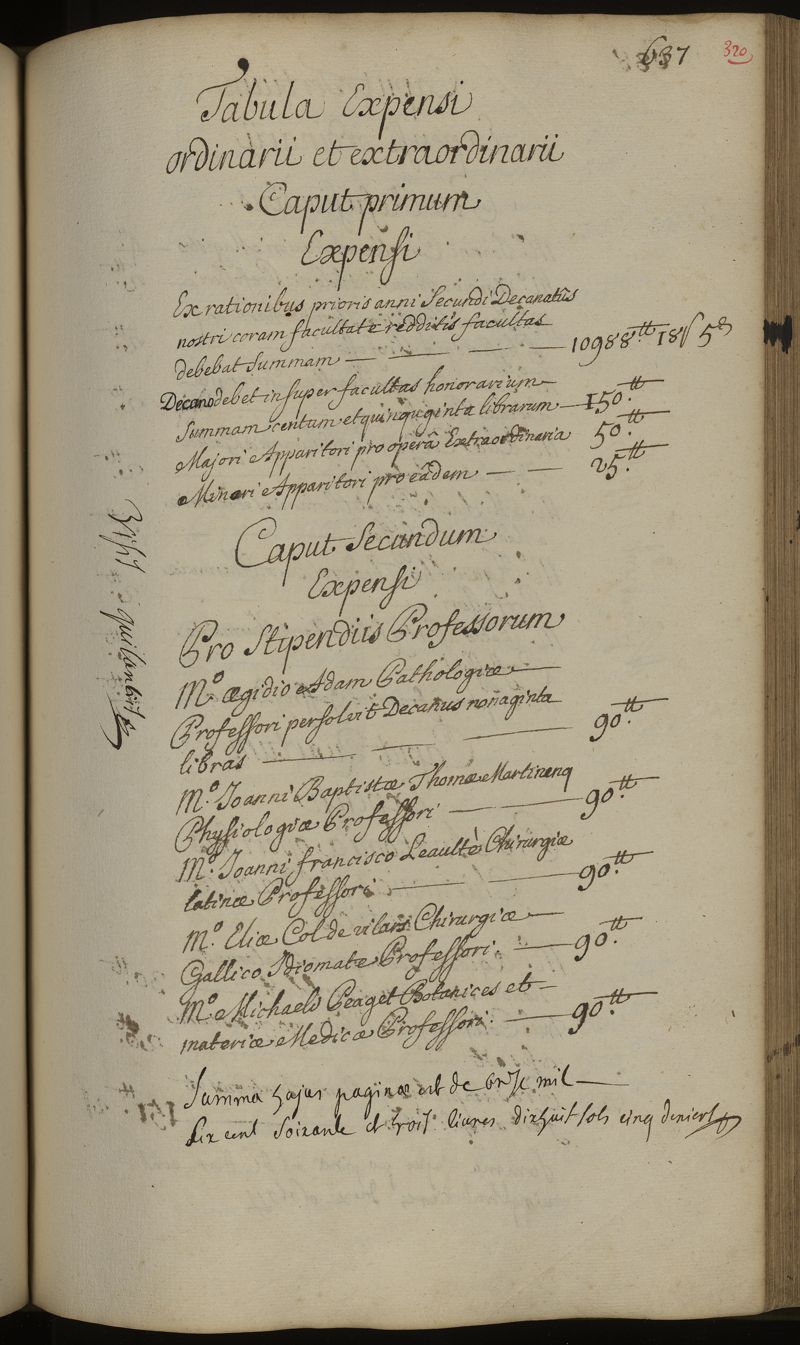 637 320
Tabula Expensi
ordinarii et extraordinarii
Caput primum
Expensi
Ex rationibus prioris anni Secundi Decanatûs
nostri coram facultate redditis facultas
debebat Summam 10988tt 18ſ 5d
Decano debet insuper facultas honorarium
Summam centum et quinquginta librarum 150tt
Majori Apparitori pro operâ Extraordinaria 50tt
Minori Apparitori pro eâdem 25tt
Caput Secundum
Expensi
Pro Stipendiis Professorum
Mo. ægidio Adam Pathologiæ
Professori persolvit Decanus nonaginta
libras 90tt
Mo. Joanni Baptistæ Thomæ Martinenq
Physiologiæ Professori 90tt
Mo. Joanni francisco Leaulté Chirurgiæ
latinæ Professori 90tt
Mo. Eliæ Col de vilars Chirurgiæ
Gallico Idiomate Professori 90tt
Mo. Michaeli Peaget Botanices et
materiæ Medicæ Professori 90tt
Summa hajus paginæ est de mil
Six cent Soixante et trois livres dixhuit sols cinq deniers
quittantiis